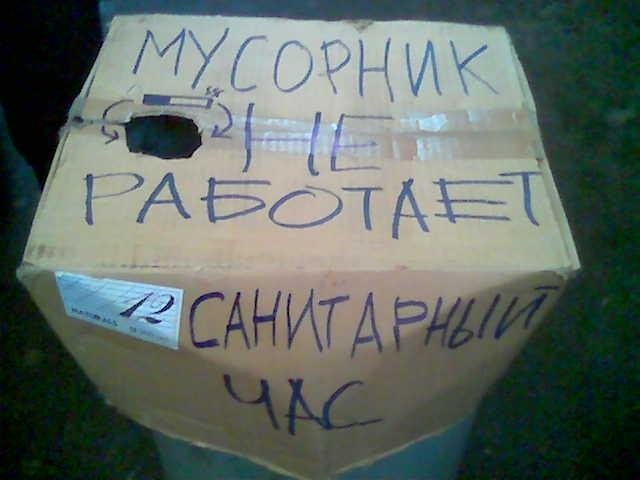 МУСОРНИК
НЕ
РАБОТАЕТ
12
САНИТАРНЫЙ
ЧАС